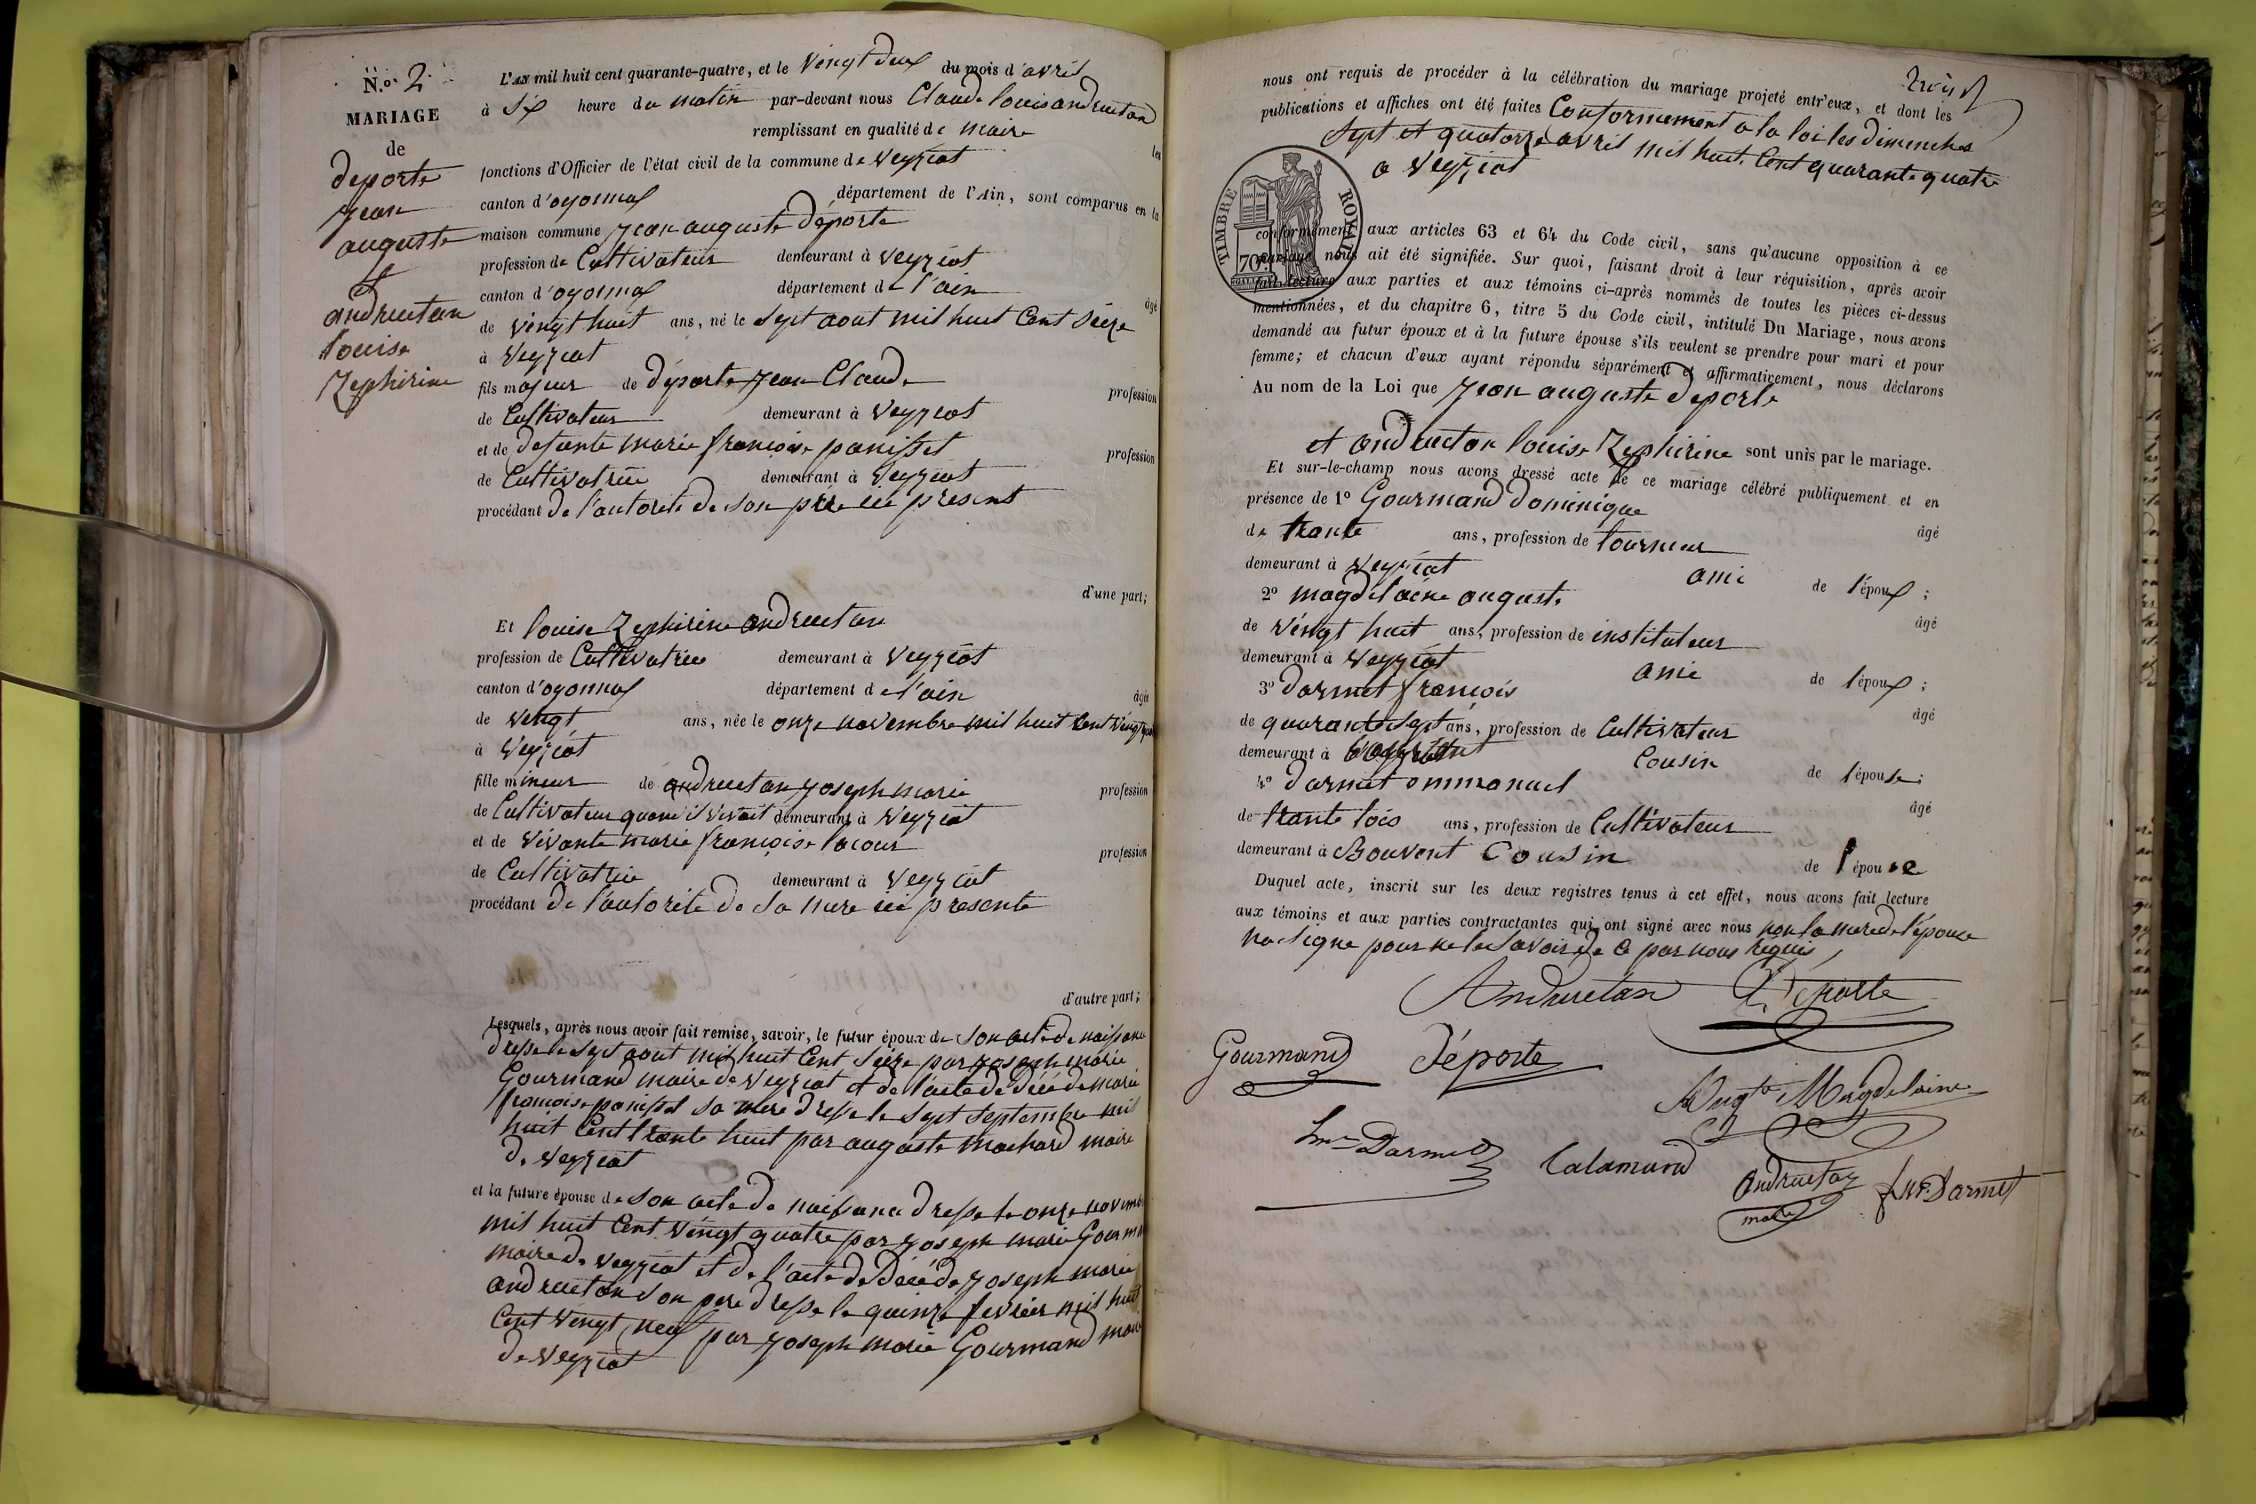 N.o 2.
MARIAGE
de
deporte
jean
auguste
et
andruetan
louise
Zephirine
L'AN mil huit cent quarante-quatre, et le vingt deux du mois d'avril
à six heure du matin par-devant nous Claude louis andruetan
remplissant en qualité de maire les
fonctions d'Officier de l'état civil de la commune de veyziat
canton d'oyonnax département de l'Ain, sont comparus en la
maison commune jean auguste déporte
profession de Cultivateur demeurant à veyziat
canton d'oyonnax département de l'ain âgé
de vingt huit ans, né le sept aout mil huit Cent seize
à veyziat
fils majeur de déporte jean Claude profession
de Cultivateur demeurant à veyziat
et de defante marie françoise panisset profession
de Cultivatrice demeurant à veyziat
procédant de l'autorite de son père ici présent
d'une part;
Et louise Zephirine andruetan
profession de Cultivatrice demeurant à veyziat
canton d'oyonnax département de l'ain âgée
de vingt ans, née le onze novembre mil huit Cent vingt
à veyziat
fille mineur de andruetan joseph marie profession
de Cultivateur quand il vivait demeurant à veyziat
et de vivante marie françoise lacour profession
de Cultivatrice demeurant à veyziat
procédant de l'autorité de sa mere ici présente
d'autre part;
Lesquels, après nous avoir fait remise, savoir, le futur époux de son acte de naissance
dressé le sept aout mil huit Cent seize par joseph marie
Gourmand maire de veyziat et de l'acte de décé de marie
françoise panisset sa mere dressé le sept septembre mil
huit Cent trante huit par auguste machard maire
de veyziat
et la future épouse de son acte de naissance dressé le onze novembre
mil huit Cent vingt quatre par joseph marie Gourmand
maire de veyziat et de l'acte de Décé de joseph marie
andruetan son pere dressé le quinze fevrier mil huit
Cent vingt neuf par joseph marie Gourmand maire
de veyziat
trois
nous ont requis de procéder à la célébration du mariage projeté entr'eux, et dont les
publications et affiches ont été faites Conformement a la loi les dimenches
sept et quatorze avril mil huit Cent quarante quatre
a veyziat
TIMBRE ROYAL
70c
conformément aux articles 63 et 64 du Code civil, sans qu'aucune opposition à ce
mariage nous ait été signifiée. Sur quoi, faisant droit à leur réquisition, après avoir
fait lecture aux parties et aux témoins ci-après nommés de toutes les pièces ci-dessus
mentionnées, et du chapitre 6, titre 5 du Code civil, intitulé Du Mariage, nous avons
demandé au futur époux et à la future épouse s'ils veulent se prendre pour mari et pour
femme; et chacun d'eux ayant répondu séparément et affirmativement, nous déclarons
Au nom de la Loi que jean auguste deporte
et andruetan louise Zephirine sont unis par le mariage.
Et sur-le-champ nous avons dressé acte de ce mariage célébré publiquement et en
présence de 1o Gourmand dominique âgé
de trante ans, profession de tourneur
demeurant à veyziat ami de l'époux;
2o magdelaine auguste âgé
de vingt huit ans, profession de instituteur
demeurant à veyziat ami de l'époux;
3o darmet françois âgé
de quarante sept ans, profession de Cultivateur
demeurant à Cousin de l'épouse;
4o darmet emmanuel âgé
de trante tois ans, profession de Cultivateur
demeurant à Bouvent Cousin de l'épouse
Duquel acte, inscrit sur les deux registres tenus à cet effet, nous avons fait lecture
aux témoins et aux parties contractantes qui ont signé avec nous non la mere de l'épouse
na signe pour ne le savoir de ce par nous requis
Andruetan Déporte
Gourmand déporte
Augte Magdelaine
Darmet Calamard andruetan
maire Darmet